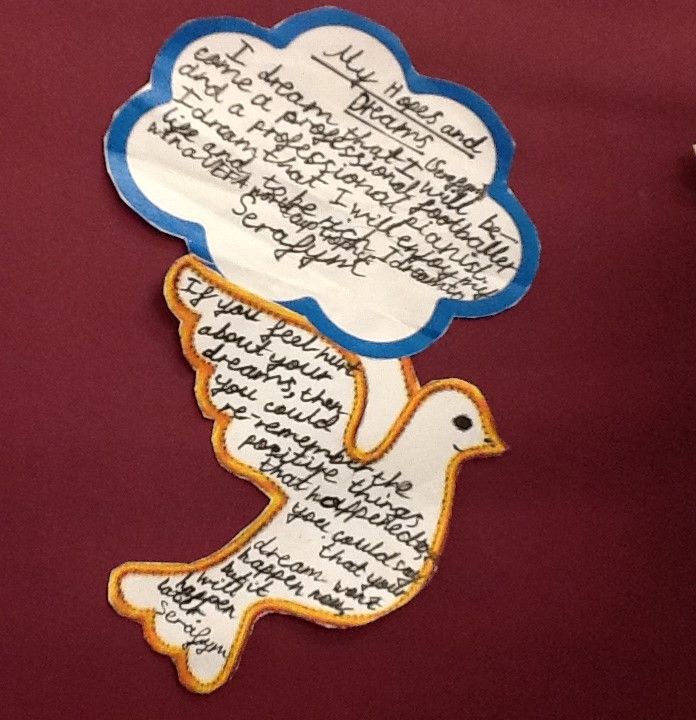 My Hopes and
Dreams
I dream that I will be-
come a professional footballer
and a professional pianist.
I dream that I will enjoy my
life and to be rich. I dream to
win a UEFA
Serafym
If you feel hurt
about your
dreams, then
you could
re-remember the
positive things
that happened or
you could say
that your
dream won't
happen now,
but it
will
happen
later
Serafym